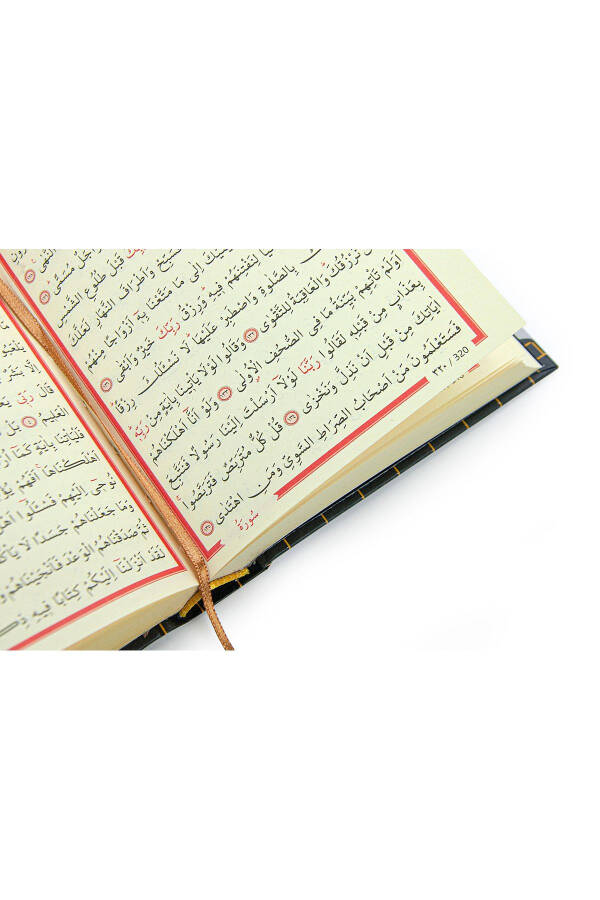 النُّهٰى
اَجَلٌ مُسَمًّى
رَبِّكَ قَبْلَ طُلُوعِ الشَّمْسِ
فَسَبِّحْ وَاَطْرَافَ النَّهَارِ لَعَلَّكَ
اِلٰى مَا مَتَّعْنَا بِهٖٓ اَزْوَاجًا مِنْهُمْ
لِنَفْتِنَهُمْ فٖيهِ وَرِزْقُ رَبِّكَ خَيْرٌ وَاَبْقٰى ﴿١٣١﴾
بِالصَّلٰوةِ وَاصْطَبِرْ عَلَيْهَا لَا نَسْـَٔلُكَ رِزْقًا
نَرْزُقُكَ وَالْعَاقِبَةُ لِلتَّقْوٰى ﴿١٣٢﴾ وَقَالُوا لَوْلَا يَأْتٖينَا بِاٰيَةٍ مِنْ رَبِّهٖ
اَوَلَمْ تَأْتِهِمْ بَيِّنَةُ مَا فِي الصُّحُفِ الْاُولٰى ﴿١٣٣﴾ وَلَوْ اَنَّٓا اَهْلَكْنَاهُمْ
بِعَذَابٍ مِنْ قَبْلِهٖ لَقَالُوا رَبَّنَا لَوْلَٓا اَرْسَلْتَ اِلَيْنَا رَسُولًا فَنَتَّبِعَ
اٰيَاتِكَ مِنْ قَبْلِ اَنْ نَذِلَّ وَنَخْزٰى ﴿١٣٤﴾ قُلْ كُلٌّ مُتَرَبِّصٌ فَتَرَبَّصُوا
فَسَتَعْلَمُونَ مَنْ اَصْحَابُ الصِّرَاطِ السَّوِيِّ وَمَنِ اهْتَدٰى ﴿١٣٥﴾
٣٢٠ / 320
سُورَةُ
قَالَ رَبّٖي
الْعَلٖيمُ ﴿٤﴾
فَلْيَأْتِنَا بِاٰيَةٍ كَمَٓا
اَهْلَكْنَاهَا اَفَهُمْ
نُوحٖٓي اِلَيْهِمْ فَسْـَٔلُٓوا
وَمَا جَعَلْنَاهُمْ جَسَدًا لَا
ثُمَّ صَدَقْنَاهُمُ الْوَعْدَ فَاَنْجَيْنَاهُمْ
لَقَدْ اَنْزَلْنَٓا اِلَيْكُمْ كِتَابًا فٖيهِ